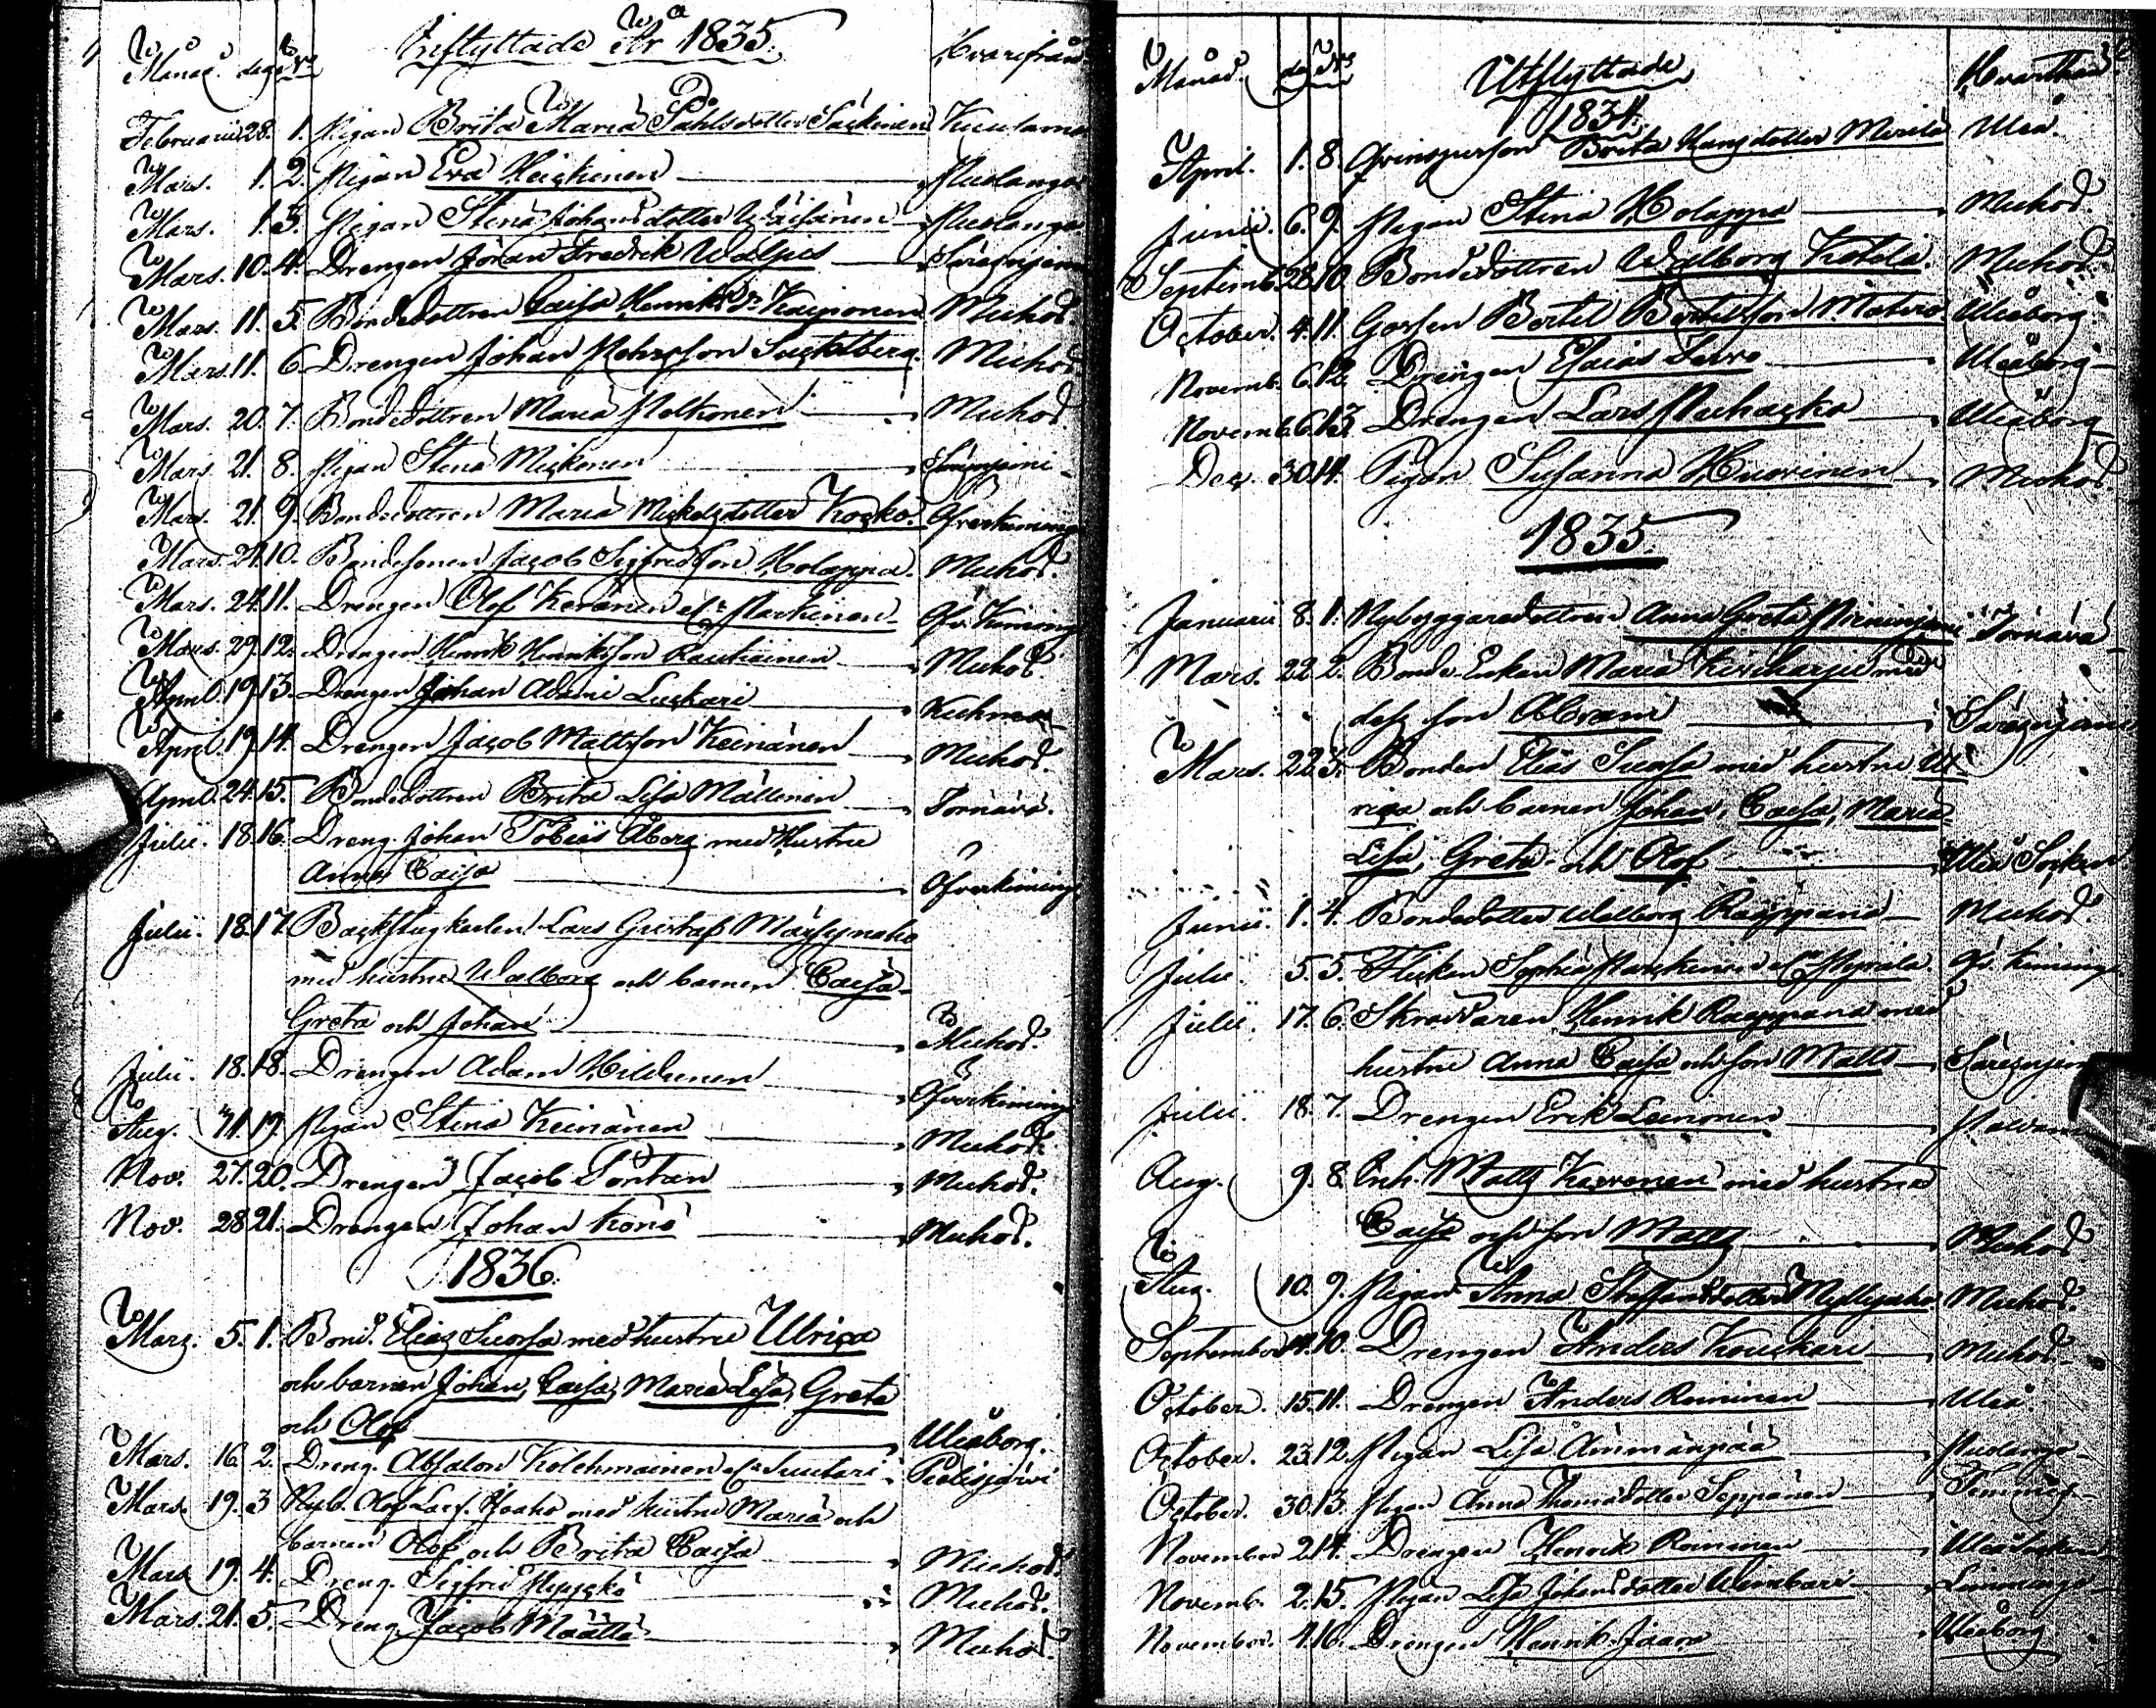 Månad. dag N:o Inflyttade År 1835. Hvarifrån
Februarii 28. 1. Pigan Brita Maria Påhlsdotter Säckinen Kuusamo
Mars. 1. 2. Pigan Eva Heickinen Pudango
Mars. 1. 3. Pigan Stina Johansdotter Wäisänen Pudango
Mars. 10. 4. Drengen Jöran Fredrik Waljus Säresniemi
Mars. 11. 5. Bondedottren Caisa Henriksdr Kaiponen Muhos.
Mars. 11. 6. Drengen Johan Johansson Sackelberg Muhos
Mars. 20. 7. Bondedottren Maria Pelkonen Muhos
Mars. 21. 8. Pigan Stina Mickonen Säresniemi
Mars. 21. 9. Bondedottren Maria Mickelsdotter Kocko. Öfverkiminge
Mars. 24. 10. Bondesonen Jacob Sigfridsson Holappa. Muhos.
Mars. 24. 11. Drengen Olof Keränen el:r Parkinen Öfv. Kiminge
Mars. 29. 12. Drengen Henrik Henriksson Rautiainen Muhos.
April. 19. 13. Drengen Johan Adami Luckari Kuhmo
April. 19. 14. Drengen Jacob Mattsson Keinänen Muhos.
April. 24. 15. Bondedottren Brita Lisa Mällinen Tornävä.
Julii. 18. 16. Dreng. Johan Tobias Åberg med Hustru
Anna Caisa Öfverkiminge
Julii. 18. 17. Backstugkarlen Lars Gustaf
med hustru Walborg och barnen Caisa
Greta och Johan Muhos.
Julii. 18. 18. Drengen Adam Hildunen Öfverkiminge
Aug. 19. Pigan Stina Keinänen Muhos.
Nov. 27. 20. Drengen Jacob Torttan Muhos.
Nov. 28. 21. Drengen Johan Könö Muhos.
1836.
Mars. 5. 1. Bond. Elias Suorsa med hustru Ulrica
och barnen Johan, Caisa, Maria Lisa, Greta
och Olof Uleåborg.
Mars. 16. 2. Dreng. Absalon Kolehmainen el:r Suutari Pielisjärvi
Mars. 19. 3. Nyb. Olof Lars. Haaho med hustru Maria och
barnen Olof och Brita Caisa Muhos.
Mars 19. 4. Dreng. Sigfrid Muhos.
Mars. 21. 5. Dreng. Jacob Määttä Muhos.
Månad. dag N:o Utflyttade Hvarthän
1834.
April. 1. 8. Qvinsperson Brita Hansdotter Merilä Uleå.
Junii. 6. 9. Pigan Stina Holappa Muhos.
Septemb. 28. 10. Bondedottren Walborg Kotila. Muhos.
October. 4. 11. Gossen Bertil Bertilsson Matero Uleåborg
Novemb. 6. 12. Drengen Esaias Uleåborg
Novemb. 6. 13. Drengen Lars Uleåborg
Dec. 30. 14. Pigan Susanna Huovinen Muhos.
1835.
Januarii 8. 1. Nybyggaredottren Anna Greta Tornävä
Mars. 22. 2. Bonde Enkan Maria Kiviharju med
dess son Abram Säresniemi
Mars. 22. 3. Bonden Elias Suorsa med hustru Ul-
rica och barnen Johan, Caisa, Maria
Lisa, Greta och Olof Uleå Socken
Junii. 1. 4. Bondedotter Walborg Räppänä Muhos.
Julii. 5. 5. Flickan Sophia Öfv. Kiminge
Julii. 17. 6. Skräddaren Henrik Raappana med
hustru Anna Caisa och son Matts Säresniemi
Julii. 18. 7. Drengen Erik Leinonen Paldamo
Aug. 9. 8. Inh. Matts Karvonen med hustru
Caisa och son Matts Muhos
Aug. 10. 9. Pigan Anna Staffansdotter Myllyaho Muhos.
September 11. 10. Drengen Anders Kouckari Muhos.
October. 15. 11. Drengen Anders Roininen Uleå.
October. 23. 12. Pigan Lisa Ämmänpää Pudango
October. 30. 13. Pigan Anna Thomsdotter Seppänen Temmes
November 2. 14. Drengen Henrik Roininen Uleå Socken
Novemb. 2. 15. Pigan Lisa Johansdotter Limmingo
November. 4. 16. Drengen Henrik Jaara Uleåborg